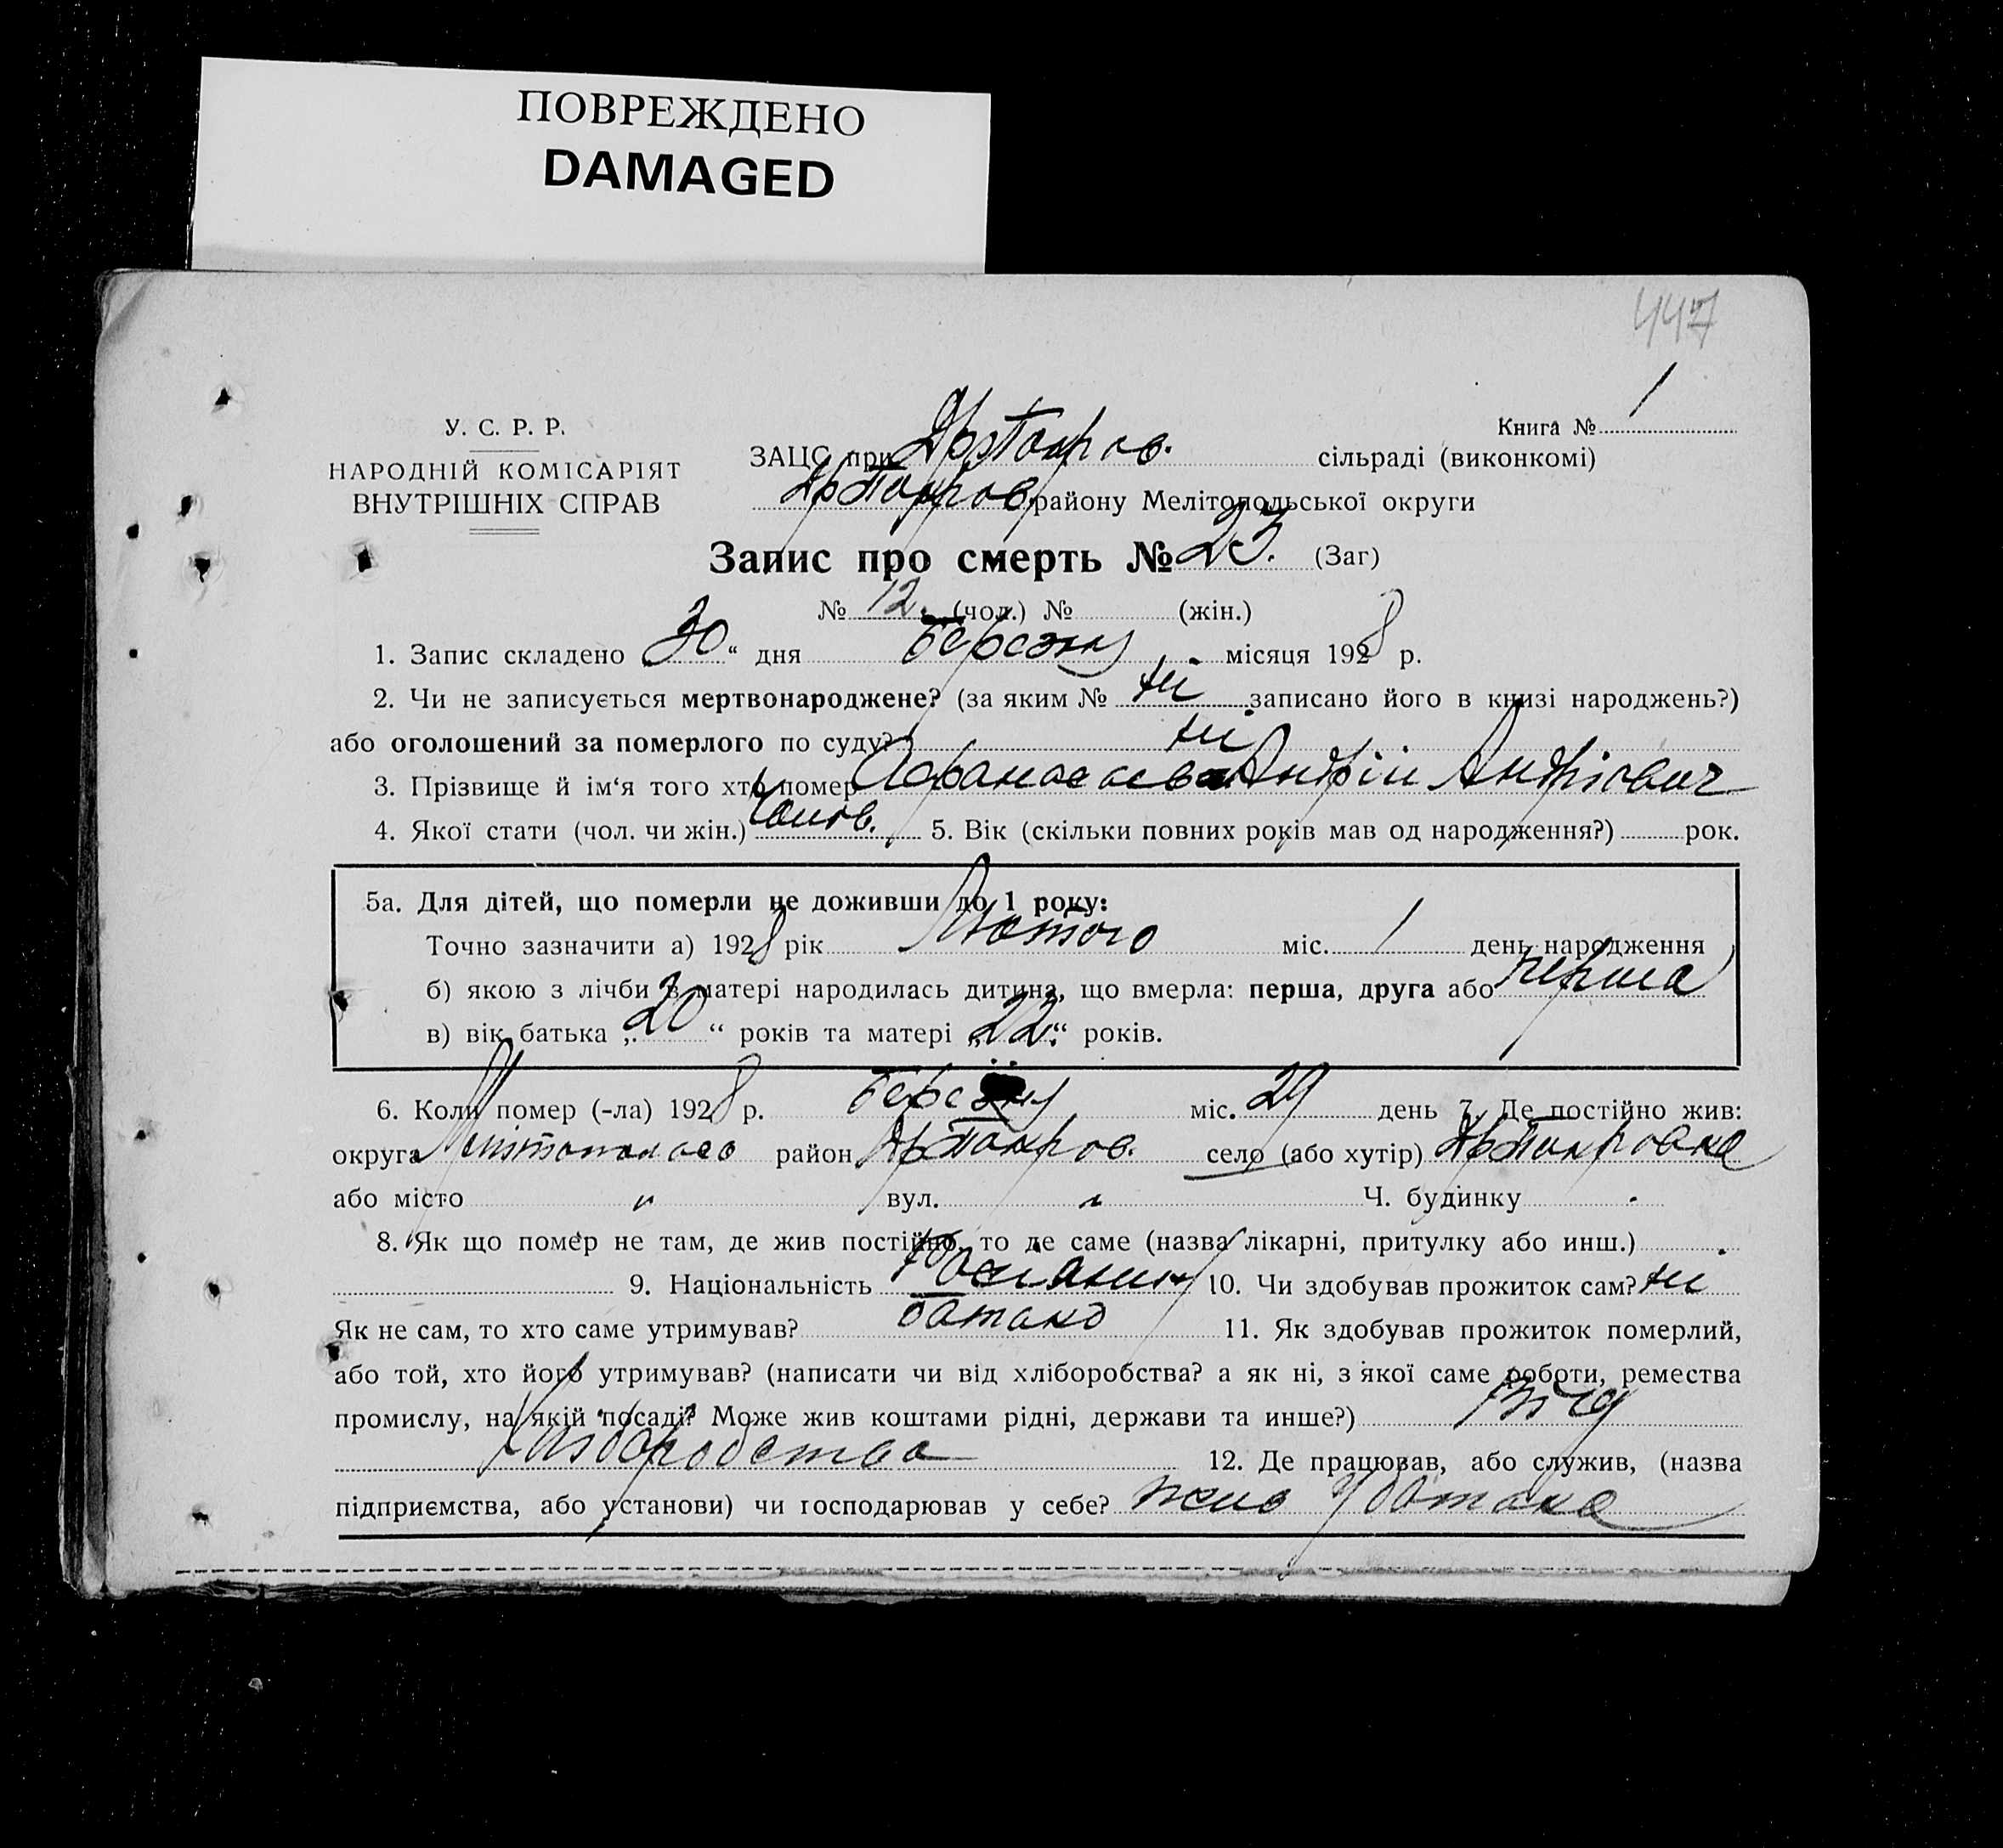 ПОВРЕЖДЕНО
DAMAGED
447
У. С. Р. Р.
НАРОДНІЙ КОМІСАРІЯТ
ВНУТРІШНІХ СПРАВ
Книга № 1
ЗАЦС при Др Покров. сільраді (виконкомі)
Др Покров. району Мелітопольської округи
Запис про смерть № 23. (Заг)
№ 12. (чол.) № (жін.)
1. Запис складено „30“ дня березня місяця 1928 р.
2. Чи не записується мертвонароджене? (за яким № ні записано його в книзі народжень?)
або оголошений за померлого по суду? ні
3. Прізвище й ім‘я того хто помер Андрій Андрієвич
4. Якої стати (чол. чи жін.) чолов. 5. Вік (скільки повних років мав од народження?) рок.
5а. Для дітей, що померли не доживши до 1 року:
Точно зазначити а) 1928 рік Лютого міс. 1 день народження
б) якою з лічби в матері народилась дитина, що вмерла: перша, друга або перша
в) вік батька „20“ років та матері „22“ років.
6. Коли помер (-ла) 1928 р. березня міс. 29 день 7. Де постійно жив:
округа район Др Покров. село (або хутір) Др Покровка
або місто " вул. " Ч. будинку
8. Як що помер не там, де жив постійно, то де саме (назва лікарні, притулку або инш.)
9. Національність 10. Чи здобував прожиток сам? ні
Як не сам, то хто саме утримував? батько 11. Як здобував прожиток померлий,
або той, хто його утримував? (написати чи від хліборобства? а як ні, з якої саме роботи, ремества
промислу, на якій посаді? Може жив коштами рідні, держави та инше?) від
хліборобства 12. Де працював, або служив, (назва
підприємства, або установи) чи господарював у себе? жив у батька